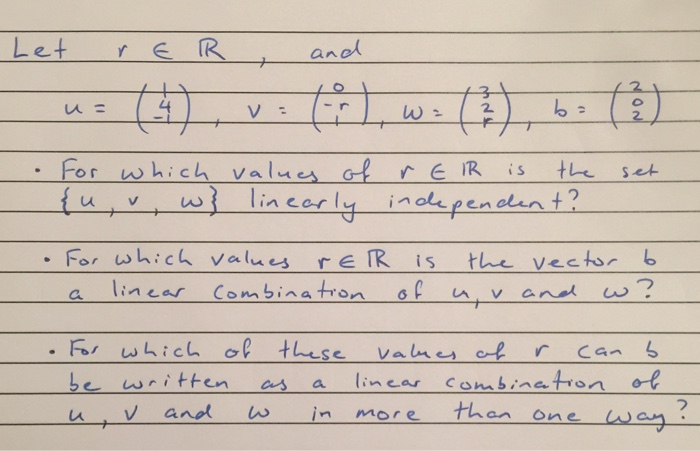 Let r ∈ ℝ, and
u = (1 4 -1), v = (0 -r 1), w = (3 2 r), b = (2 0 2)
• For which values of r ∈ ℝ is the set
{u, v, w} linearly independent?
• For which values r ∈ ℝ is the vector b
a linear combination of u, v and w?
• For which of these values of r can b
be written as a linear combination of
u, v and w in more than one way?